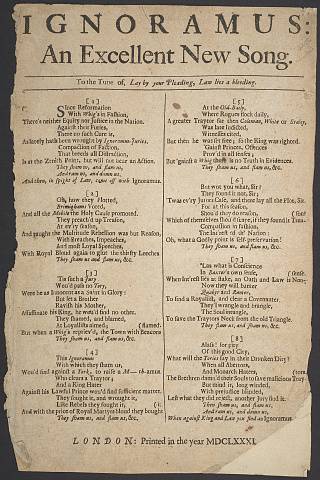 IGNORAMUS:
An Excellent New Song.
To the Tune of, Lay by your Pleading, Law lies a bleeding.
[1]
Since Reformation
With Whig's in Fashion,
There's neither Equity nor Justice in the Nation.
Against their Furies,
There no such Cure is,
As lately hath been wrought by Ignoramus-Juries.
Compaction of Faction,
That breeds all Distraction,
Is at the Zenith Point, but will not bear an Action.
They sham us, and flam us,
And ram us, and damn us,
And then, in spight of Law, come off with Ignoramus.
[2]
Oh, how they Plotted,
Brimighams Voted,
And all the Mobile the Holy Cause promoted.
They preach'd up Treason,
At ev'ry season,
And taught the Multitude Rebellion was but Reason.
With Breaches, Impeaches,
And most Loyal Speeches,
With Royal Blood again to glut the thirsty Leeches
They sham us, and flam us, &c.
[3]
'Tis such a Jury
Wou'd pass no Tory,
Were he as Innocent as a Saint in Glory:
But let a Brother
Ravish his Mother,
Assassinate his King, he would find no other.
They shamed, and blamed,
At Loyallists aimed;
But when a Whig's repriev'd, the Town with Beacons flamed.
They sham us, and flam us, &c.
[4]
This Ignoramus
With which they sham us,
Wou'd find against a York, to raise a M—th-amus
Who clears a Traytor,
And a King Hater
Against his Lawful Prince wou'd find sufficient matter.
They fought it, and wrought it,
Like Rebels they fought it,
And with the price of Royal Martyrs blood they bought it.
They sham us, and flam us, &c.
[5]
At the Old-Baily,
Where Rogues flock daily,
A greater Traytor far then Coleman, White or Staley,
Was late Indicted,
Witnesses cited,
But then he was set free; so the King was righted.
'Gainst Princes, Offences
Prov'd in all senses,
But 'gainst a Whig there is no Truth in Evidences.
They sham us, and flam us, &c.
[6]
But wot you what, Sir?
They found it not, Sir,
'Twas ev'ry Jurors Case, and there lay all the Plot, Sir.
For at this season,
Shou'd they do reason,
Which of themselves shou'd scape, if they found it Treason?
Compassion in fashion,
The Int'rest of the Nation:
Oh, what a Godly point is self-preservation!
They sham us, and flam us, &c.
[7]
'Las what is Conscience
In Baxter's own sense,
When Int'rest lies at stake, an Oath and Law is Nonsense.
Now they will banter
Quaker and Ranter,
To find a Royalist, and clear a Covenanter.
They wrangle and triangle,
The Soul intangle,
To save the Traytors Neck from the old Triangle.
They sham us, and flam us, &c.
[8]
Alas! for pity
Of this good City,
What will the Tories say in their Drunken Ditty?
When all Abettors,
And Monarch Haters,
The Brethren damn'd their Souls to save malicious Traytors.
But mind it, long winded,
With prejudice blinded,
Lest what they did reject, another Jury find it.
Then sham us, and flam us,
And ram us, and damn us,
When against King and Law you find an Ignoramus.
LONDON: Printed in the year MDCLXXXI.